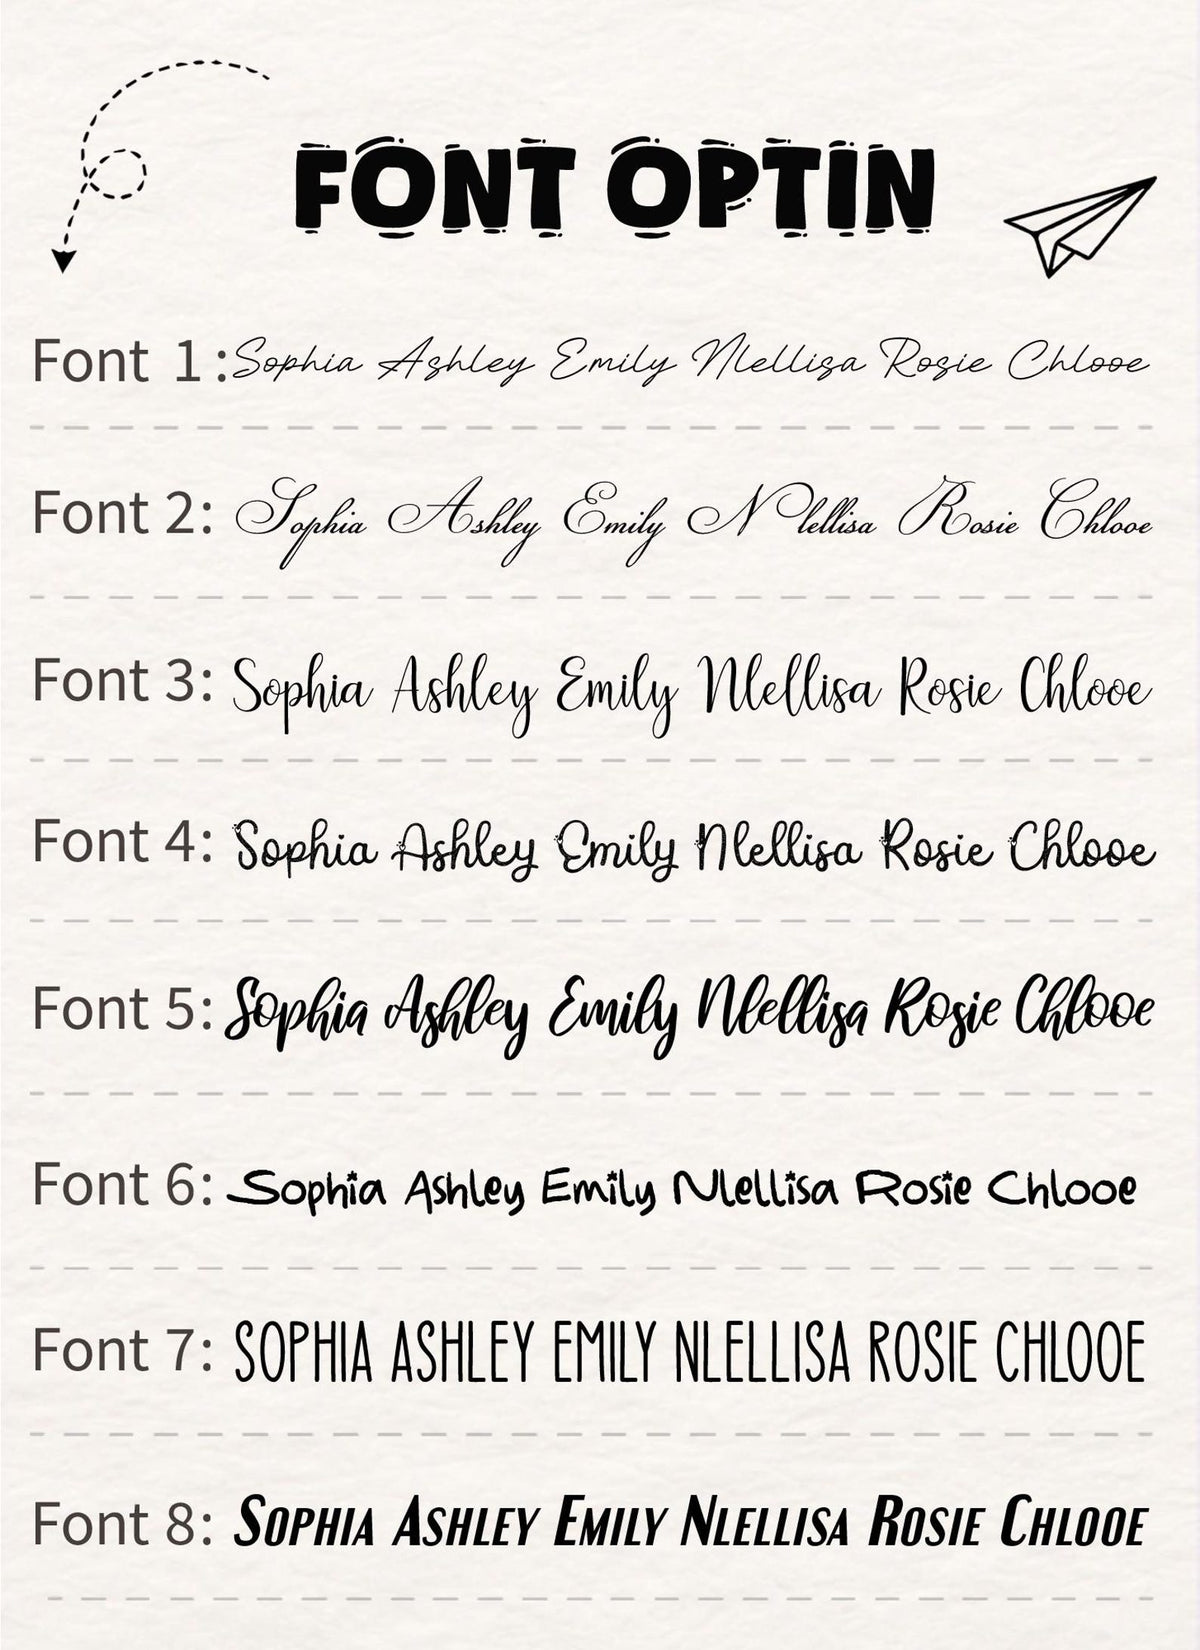 FONT OPTIN
Font 1: Sophia Ashley Emily Nlellisa Rosie Chlooe
Font 2: Sophia Ashley Emily Nlellisa Rosie Chlooe
Font 3: Sophia Ashley Emily Nlellisa Rosie Chlooe
Font 4: Sophia Ashley Emily Nlellisa Rosie Chlooe
Font 5: Sophia Ashley Emily Nlellisa Rosie Chlooe
Font 6: Sophia Ashley Emily Nlellisa Rosie Chlooe
Font 7: SOPHIA ASHLEY EMILY NLELLISA ROSIE CHLOOE
Font 8: SOPHIA ASHLEY EMILY NLELLISA ROSIE CHLOOE